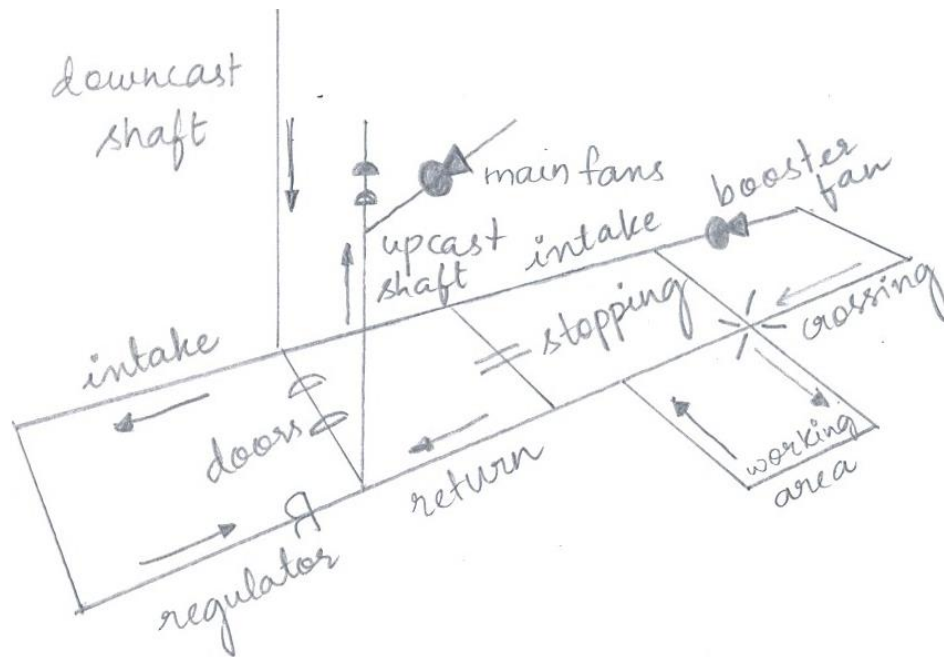 downcast
shaft
main fans
booster
fan
upcast
shaft
intake
intake
stopping
crossing
doors
return
working
area
R
regulator